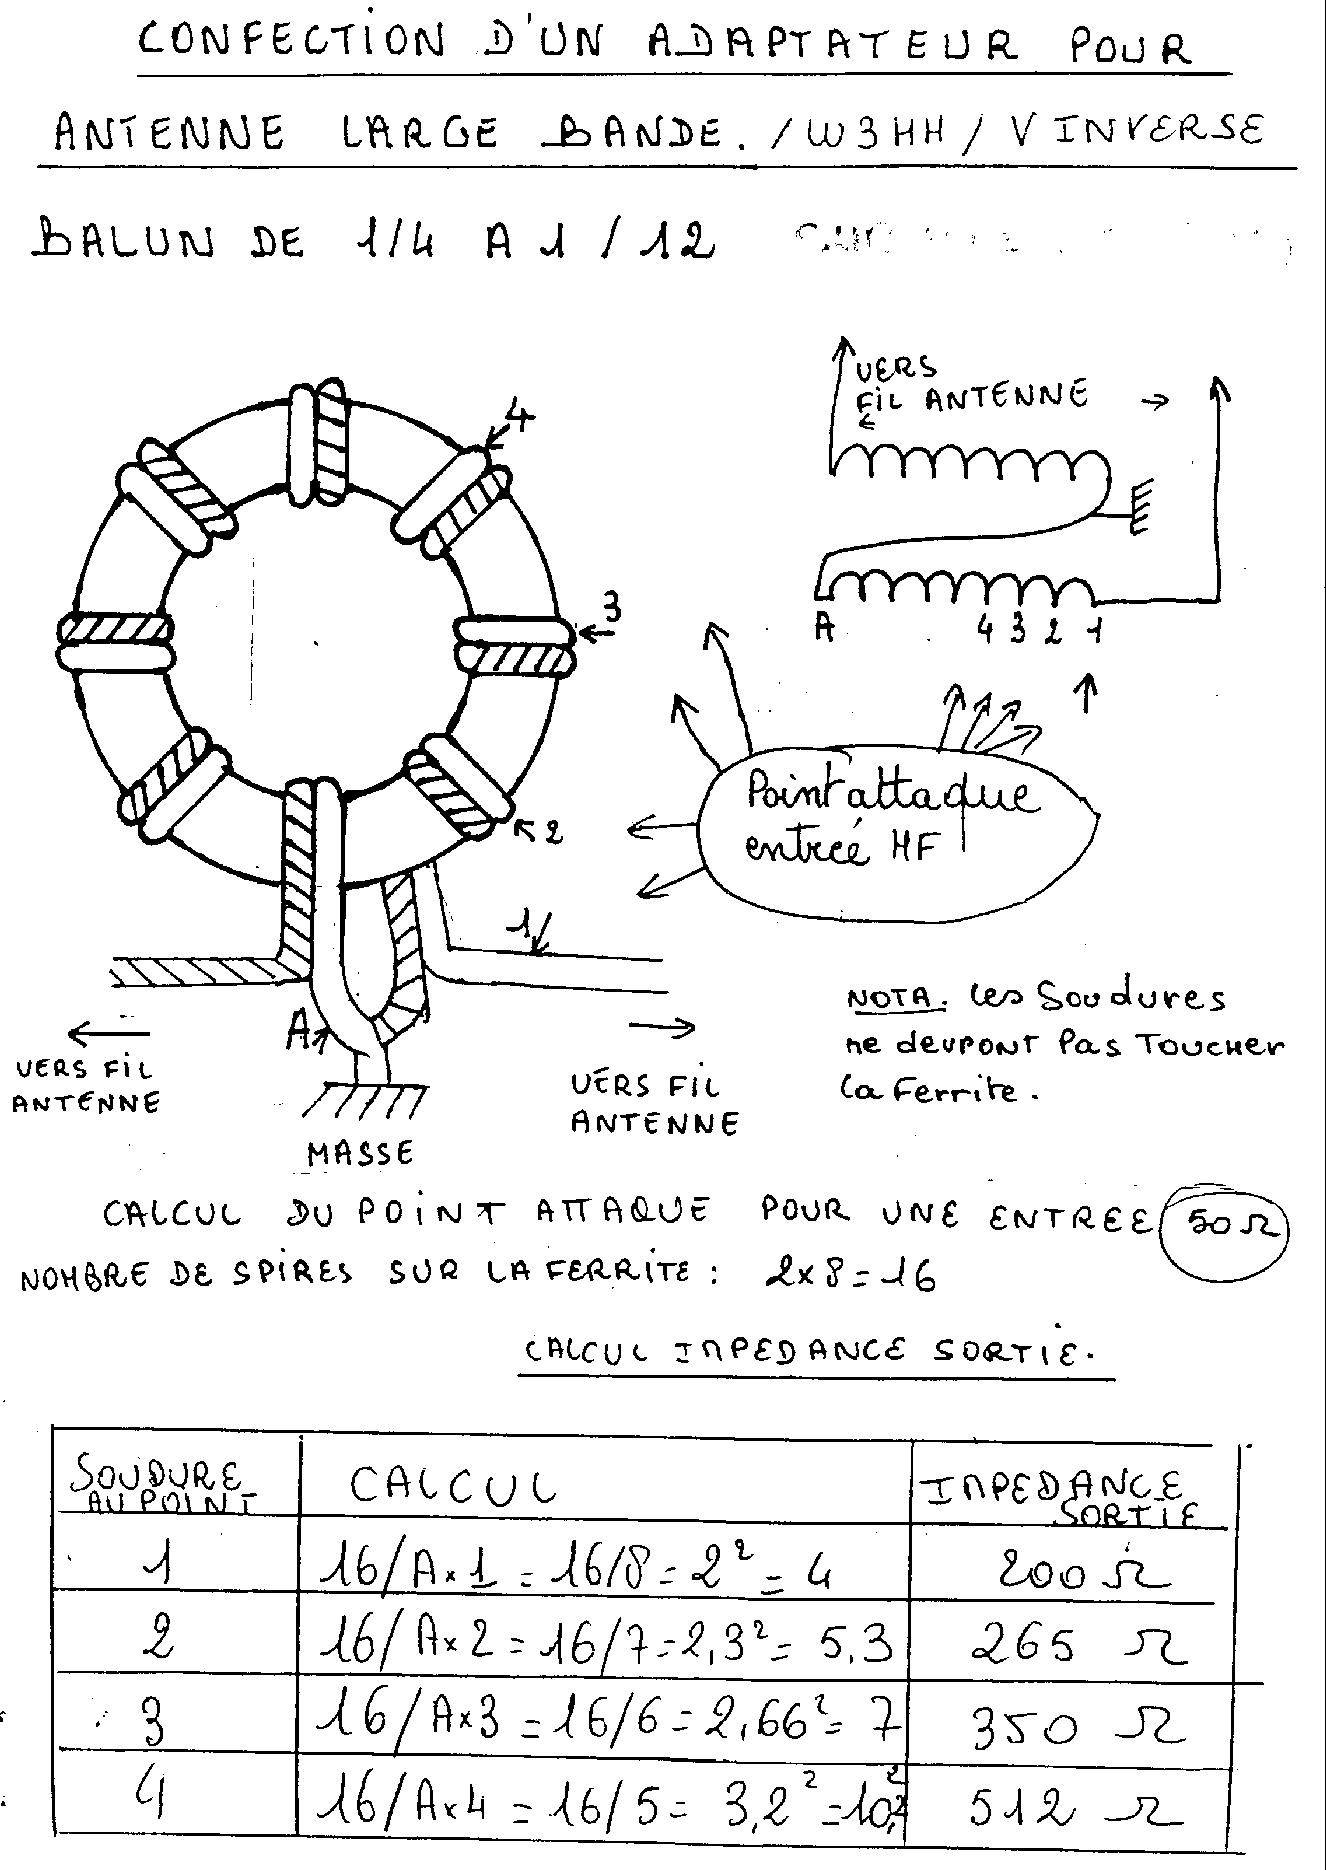 CONFECTION D'UN ADAPTATEUR POUR
ANTENNE LARGE BANDE. /W3HH/ V INVERSE
BALUN DE 1/4 A 1/12
4
3
2
1
A
VERS FIL
ANTENNE
MASSE
VERS FIL
ANTENNE
VERS
FIL ANTENNE
A 4 3 2 1
Point attaque
entrée HF
NOTA. Les Soudures
ne devront Pas Toucher
la Ferrite.
CALCUL DU POINT ATTAQUE POUR UNE ENTREE 50 Ω
NOMBRE DE SPIRES SUR LA FERRITE : 2x8=16
CALCUL IMPEDANCE SORTIE.
SOUDURE
AU POINT
CALCUL
IMPEDANCE
SORTIE
1 16/A×1 = 16/8 = 2² = 4 200 Ω
2 16/A×2 = 16/7 = 2,3² = 5.3 265 Ω
3 16/A×3 = 16/6 = 2,66² = 7 350 Ω
4 16/A×4 = 16/5 = 3,2² = 10,2² 512 Ω